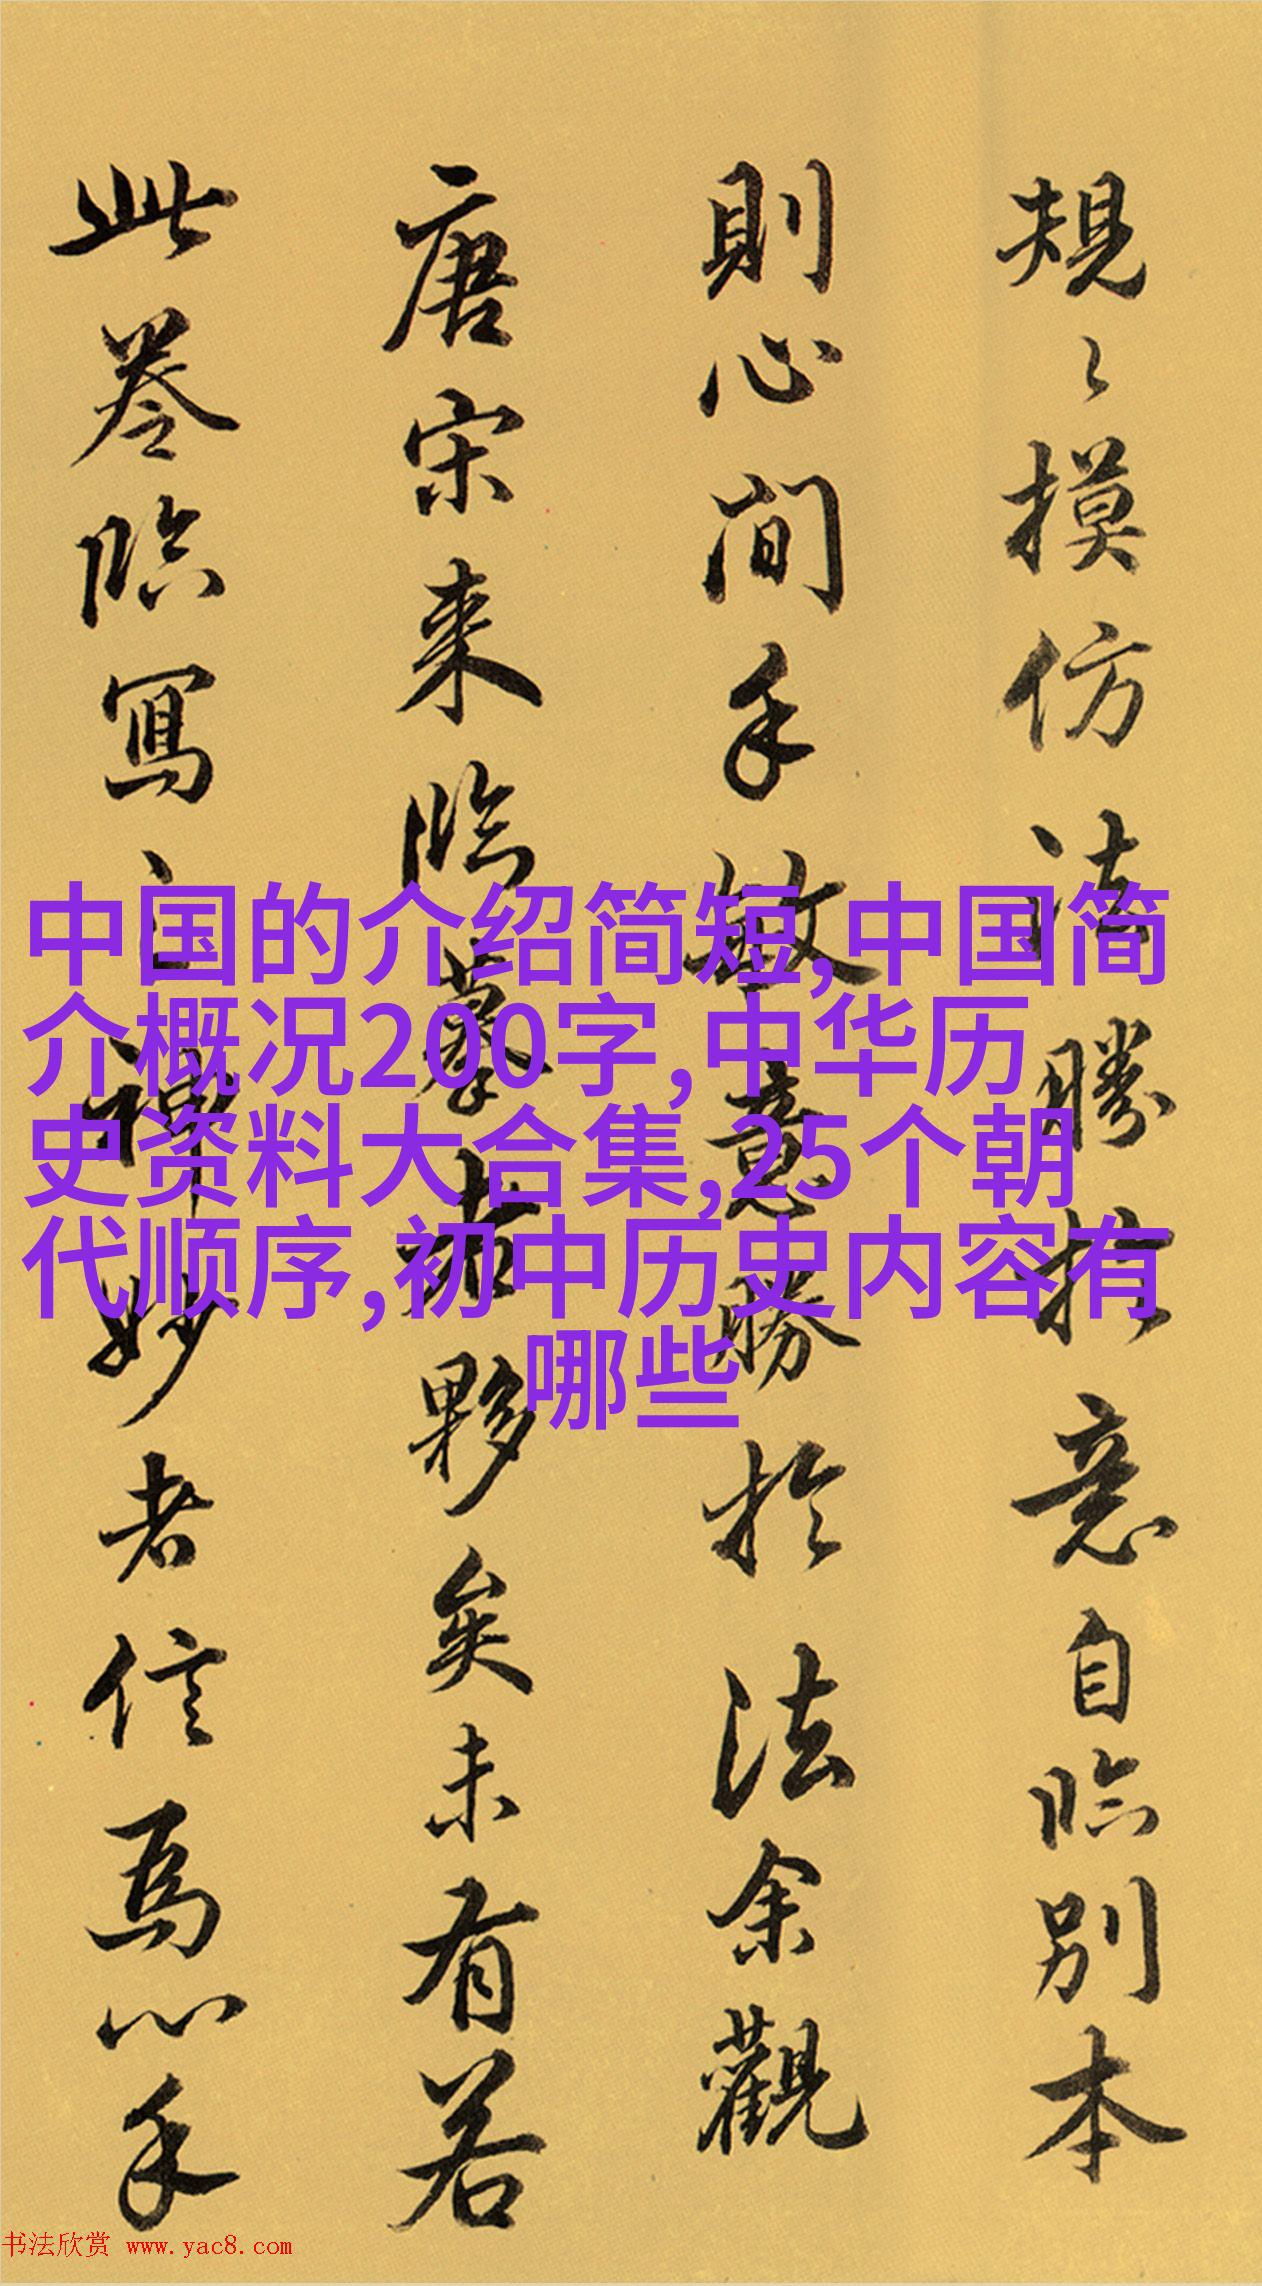 規々摸仿法勝於意自臨別本
則心間手敏意勝於法余觀
唐宋来臨摹者夥矣未有若
此卷臨寫之神妙者信焉心手
中国的介绍简短,中国简
介概况200字,中华历
史资料大合集,25个朝
代顺序,初中历史内容有
哪些
书法欣赏 www.yac8.com